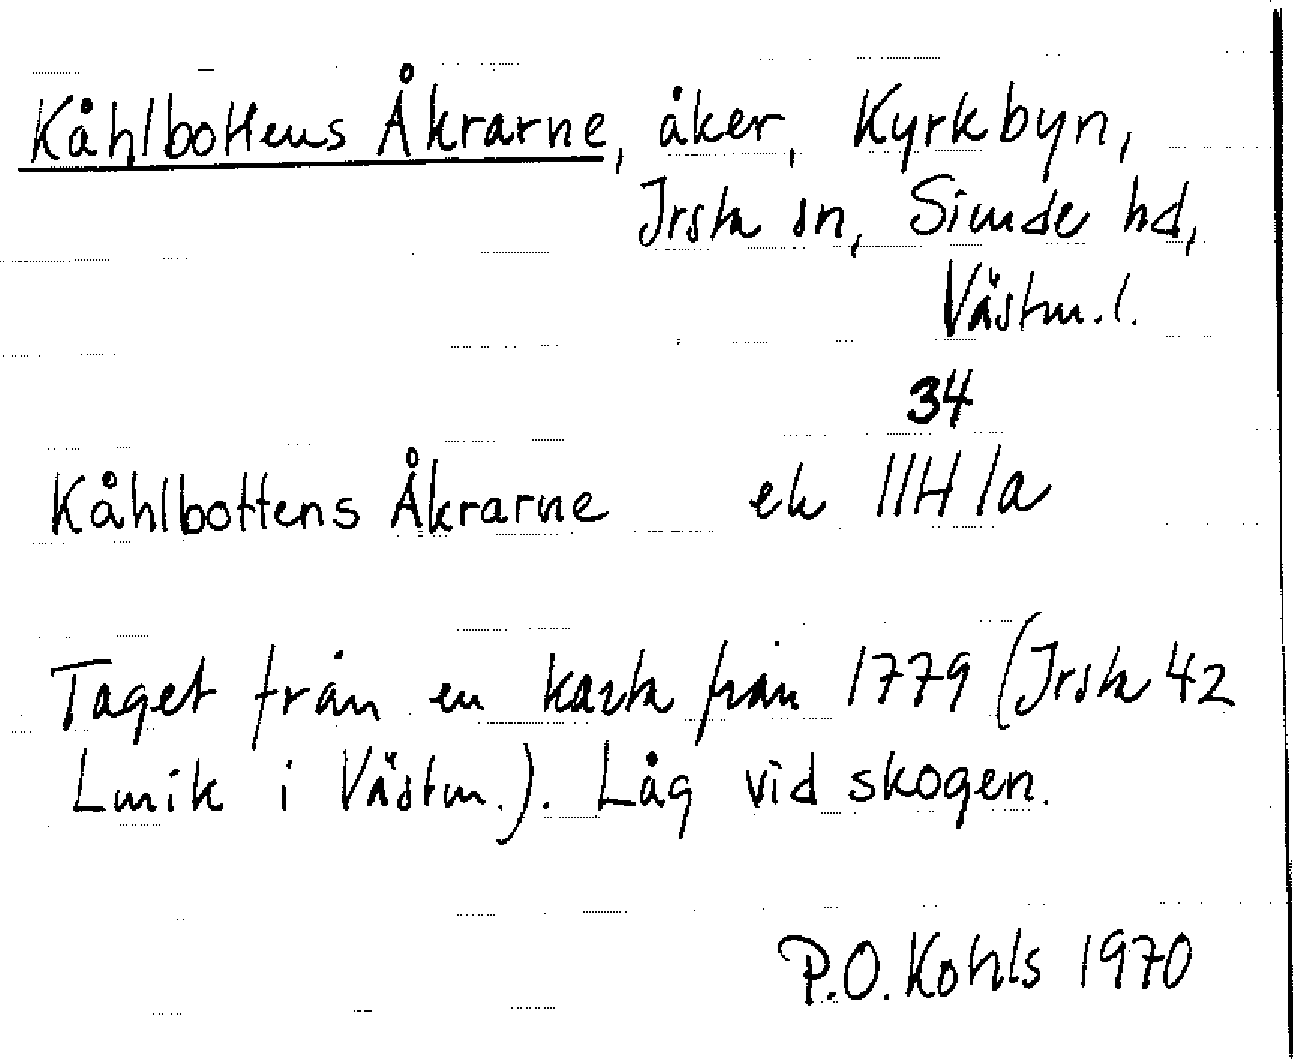 Kåhlbottens Åkrarne, åker, Kyrkbyn,
Irsta sn, Siende hd,
Västm. l.
34
Kåhlbottens Åkrarne ek 11H 1a
Taget från en karta från 1779 (Irsta 42
Lmik i Västm.). Låg vid skogen.
P.O. Kohls 1970